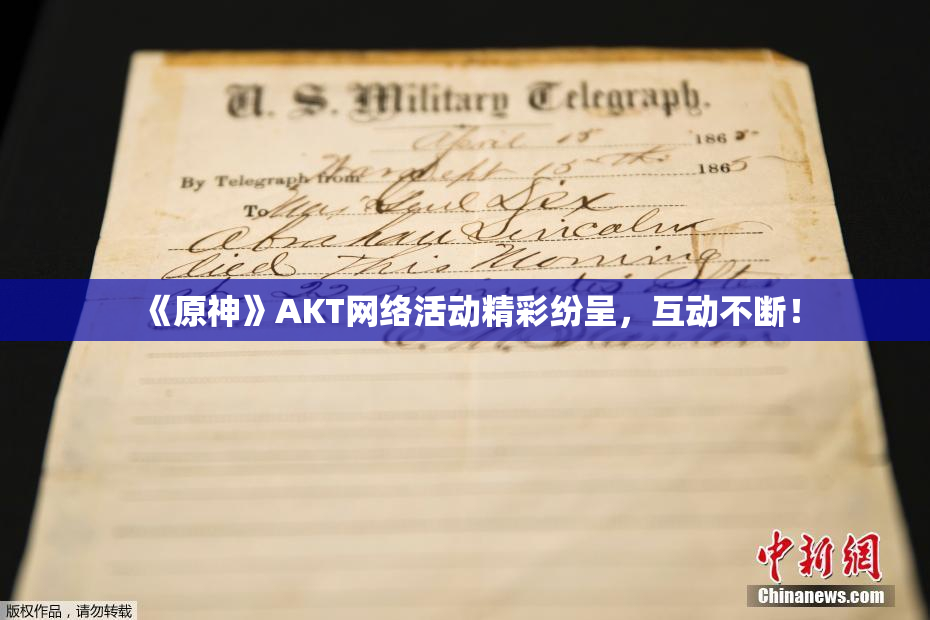 U. S. Military Telegraph.
April 15 1865
By Telegraph from War Dept 15th 1865
To Maj Genl Dix
Abraham Lincoln
died This Morning
at 22 minutes after
《原神》AKT网络活动精彩纷呈，互动不断！
E. M. Stanton
中新网
Chinanews.com
版权作品，请勿转载